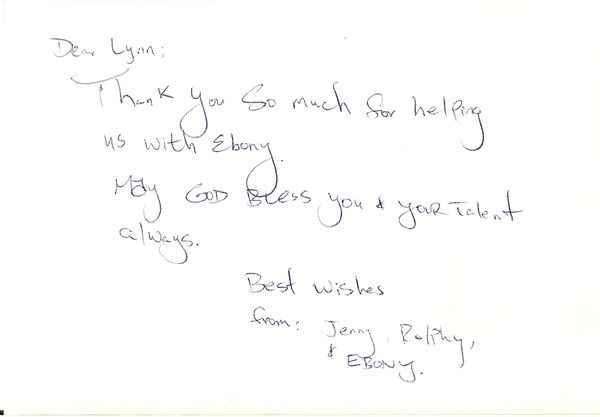 Dear Lynn:
Thank you so much for helping
us with Ebony.
May GOD BLess you & YOUR Talent
always.
Best wishes
from: Jenny, Rolphy,
& EBONY.